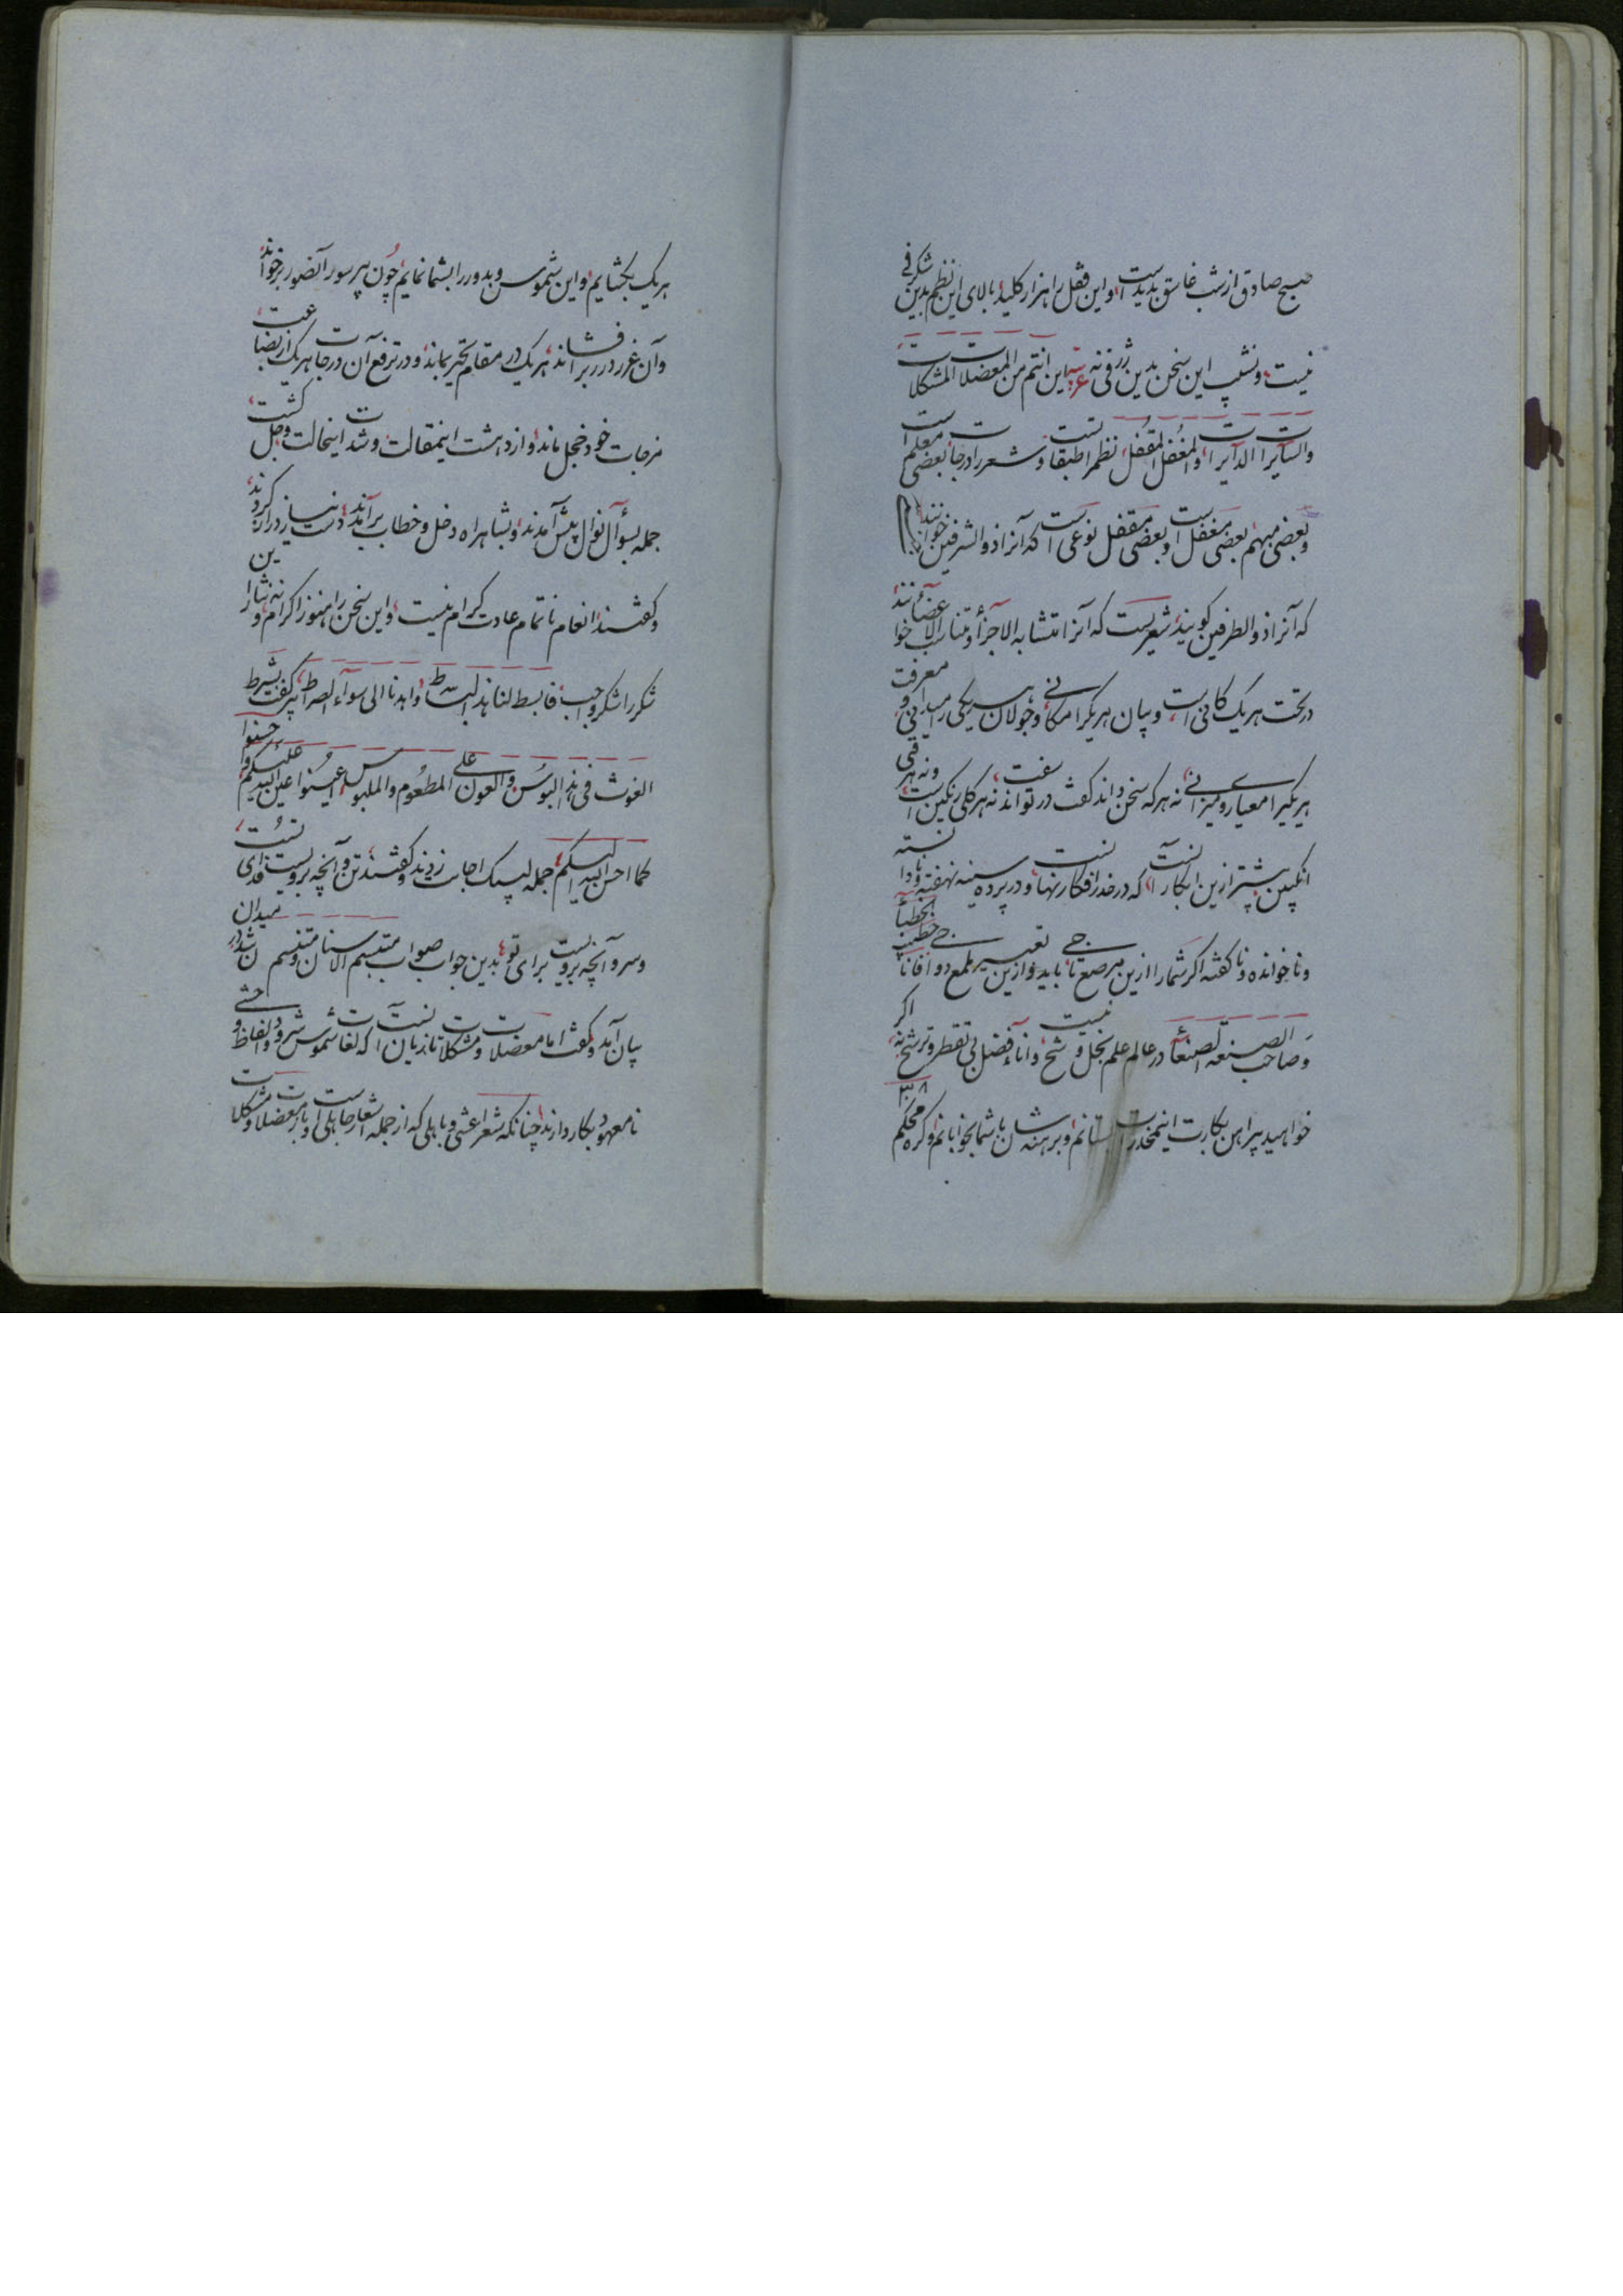 صبح صادق از شب غاسق پدیدست، و این قفل را هزار کلید، بالای این نظم بدین شگرفی
نیست، و نشیب این سخن بدین ژرفی نه عربیه این انتم من المعضلات المشکلات
والسایرات الدایرات، والمغفل المقفل، نظم را طبقاتست و شعر را درجات بعضی معلم است
و بعضی مبهم بعضی مغفل است و بعضی مقفل نوعی است که آنرا ذو الشرفین خوانند
که آنرا ذو الطرفین گویند، شعریست که آنرا متشابه الاجزأ و متناسب الاعضأ خوانند
در تحت هر یک کانی است، و بیان هر یک را مکانی، و جولان هر یکی را میدانی و معرفت
هر یکی را معیاری و میزانی، نه هر که سخن داند گفت در تواند سفت، نه هر گلی رنگین است، و نه هر نی
انگبین پیشتر ازین ابکار آنست، که در خدر افکار نهانست و در پرده سینه نهفته و نادانسته
و ناخوانده و ناگفته اگر شما را ازین مرصع تاجی باید و ازین ملمع دواجی
و صاحب الصنعه لصنعأ در عالم علم بخل و شح نیست و اناء فضل بی تقطر و ترشح نه، اگر
خواهید پیراهن بکارت این مخدرات بستانم، و برهنه شان با شما بخوابانم و گره محکم
هر یک بگشایم، و این شموس و بدور را بشما نمایم، چون پیر سور آنصور برخواند،
و آن غرر درر برافشاند، هر یک در مقام تحیر بماند، و در ترفع آن درجات هر یک از بضاعت
مزجات خود خجل ماند، و از دهشت اینمقالت و شدت اینحالت وجل گشت،
جمله بسؤال نوال پیش آمدند، و بشاهراه دخل و خطاب برآمدند، دست نیاز دراز کردند،
و گفتند، انعام ناتمام عادت کرام نیست، و این سخن را هنوز اکرام و نه نثار این
شکر را شکر واجب، فابسط لنا هذا البساط، و اهدنا الی سواء الصراط، پیر گفت بشرط
الغوث فی هذا البوس والعون علی المطعوم والملبوس، اعینوا عین الیدیکم، و احسنوا علیکم
کما احسن الیه الیکم، جمله لبیک اجابت زدند و گفتند تن و آنچه برویست فدای تست،
و سر و آنچه بروست برای تو، بدین جواب صواب متبسم الاسنان و متنسم
بیان آمد و گفت اما معضلات و مشکلات تازیان آنست که لغات شموس شرود و الفاظ وحشی
نامعهود بکار دارند، چنانکه شعر اعشی و باهلی که از جمله اشعار جاهلی است و بر معضلات و مشکلات